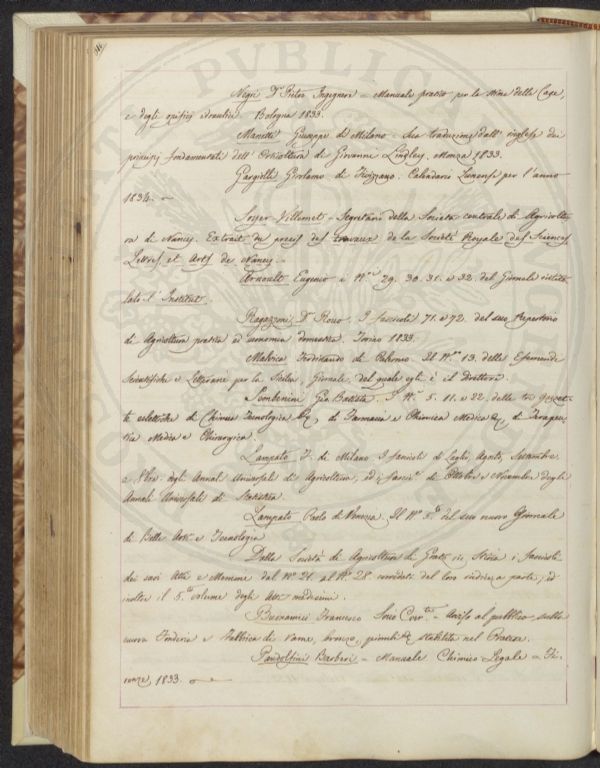 Negri Dr. Pietro Ingegnere = Manuale pratico per la stima delle Case,
e degli opifizj idraulici. Bologna 1833.
Manetti Giuseppe di Milano - Sua traduzione dall' inglese dei
principj fondamentali dell' Orticoltura di Giovanni Lindley. Monza 1833.
Gargiolli Girolamo di Fivizzano. Calendario Lunense per l'anno
1834.
Soyer Villemet - Segretario della Società centrale di Agricoltu-
ra di Nancy. Extrait du precis des travaux de la Société Royale des Sciences
Lettres et Arts de Nancy.
Arnoult Eugenio i N.i 29. 30. 31. e 32. del Giornale intito-
lato l' Institut.
Ragazzoni Dr. Rocco. I fascicoli 71. e 72. del suo Repertorio
di Agricoltura pratica ed economia domestica. Torino 1833.
Malvica Ferdinando di Palermo. Il N.ro 13. delle Efemeridi
Scientifiche e Letterarie per la Sicilia, Giornale del quale egli è il Direttore.
Sembenini Gio. Batista. I N.i 5. 11. e 22. delle tre Gazzet-
te eclettiche di Chimica Tecnologica &c, di Farmacia e Chimica Medica &c, di Terapeu-
tica Medica e Chirurgica.
Lampato F. di Milano. I fascicoli di Luglio, Agosto, Settembre
e 8bre. degli Annali Universali di Agricoltura, ed i fascic.i di Ottobre e Novembre degli
Annali Universali di Statistica.
Lampato Paolo di Venezia. Il N.o 5.o del suo nuovo Giornale
di Belle Arti e Tecnologia
Dalla Società di Agricoltura di Gratz in Stiria i fascicoli
dei suoi Atti e Memorie dal N.o 21. al N.o 28. corredati del loro indice a parte; ed
inoltre il 5.to volume degli Atti medesimi.
Buonamici Francesco Socio Corr.te - Avviso al pubblico sulla
nuova Fonderia e Fabbrica di rame, bronzo, &c stabilita nel
Pandolfini Barberi - Manuale Chimico Legale = Fi-
renze 1833.